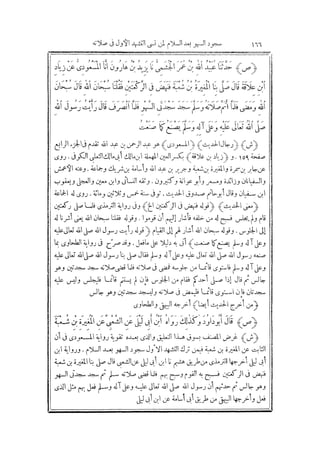 ١٦٦ سجود السهو بعد السلام لمن نسى التشهد الأول فى صلاته
﴿ص﴾ حَدَّثَنَا عُبَيْدُ اللهِ بْنُ عُمَرَ الْجُشَمِىُّ نَا يَزِيدُ بْنُ هَارُونَ أَنَا الْمَسْعُودِىُّ عَنْ زِيَادِ
ابْنِ عِلَاقَةَ قَالَ صَلَّى بِنَا الْمُغِيرَةُ بْنُ شُعْبَةَ فَنَهَضَ فِى الرَّكْعَتَيْنِ فَقُلْنَا سُبْحَانَ اللهِ قَالَ سُبْحَانَ
اللهِ وَمَضَى فَلَمَّا أَتَمَّ صَلَاتَهُ وَسَلَّمَ سَجَدَ سَجْدَتَىِ السَّهْوِ فَلَمَّا انْصَرَفَ قَالَ رَأَيْتُ رَسُولَ اللهِ
صَلَّى اللهُ تَعَالَى عَلَيْهِ وَعَلَى آلِهِ وَسَلَّمَ يَصْنَعُ كَمَا صَنَعْتُ
﴿ش﴾ ﴿رجال الحديث﴾ ﴿المسعودى﴾ هو عبد الرحمن بن عبد الله تقدم فى الجزء الرابع
صفحة ١٥٩. و ﴿زياد بن علاقة﴾ بكسر العين المهملة ابن مالك أبى مالك الثعلبى الكوفى. روى
عن جابر بن سمرة والمغيرة بن شعبة وجرير بن عبد الله وأسامة بن شريك وجماعة. وعنه الأعمش
والسفيانان وزائدة ومسعر وأبو عوانة وكثيرون. وثقه النسائى وابن معين والعجلى ويعقوب
ابن سفيان وقال أبو حاتم صدوق الحديث. توفى سنة خمس وثلاثين ومائة. روى له الجماعة
﴿معنى الحديث﴾ ﴿قوله فنهض فى الركعتين الخ﴾ وفى رواية الترمذى فلما صلى ركعتين
قام ولم يجلس فسبح له من خلفه فأشار إليهم أن قوموا. وقوله فقلنا سبحان الله يعنى أشرنا له
إلى الجلوس. وقوله قال سبحان الله أشار لهم إلى القيام ﴿قوله رأيت رسول الله صلى الله تعالى عليه
وعلى آله وسلم يصنع كما صنعت﴾ أتى به دليلا على مافعل. وقد صرح فى رواية الطحاوى بما
صنعه رسول الله صلى الله تعالى عليه وعلى آله وسلم فقال صلى بنا رسول الله صلى الله تعالى عليه
وعلى آله وسلم فاستوى قائما من جلوسه فمضى فى صلاته فلما قضى صلاته سجد سجدتين وهو
جالس ثم قال إذا صلى أحدكم فقام من الجلوس فإن لم يستتم قائما فليجلس وليس عليه
سجدتان فإن استوى قائما فليمض فى صلاته وليسجد سجدتين وهو جالس
﴿من أخرج الحديث أيضا﴾ أخرجه البيهقى والطحاوى
﴿ص﴾ قَالَ أَبُو دَاوُدَ وَكَذَلِكَ رَوَاهُ ابْنُ أَبِى لَيْلَى عَنِ الشَّعْبِىِّ عَنِ الْمُغِيرَةِ بْنِ شُعْبَةَ
﴿ش﴾ غرض المصنف بسوق هذا التعليق والذى بعده تقوية رواية المسعودى فى أن
الثابت عن المغيرة بن شعبة فيمن ترك التشهد الأول سجود السهو بعد السلام. ورواية ابن
أبى ليلى أخرجها الترمذى من طريق هشيم أنا ابن أبى ليلى عن الشعبى قال صلى بنا المغيرة بن شعبة
فنهض فى الركعتين فسبح به القوم وسبح بهم فلما قضى صلاته سلم ثم سجد سجدتى السهو
وهو جالس ثم حدثهم أن رسول الله صلى الله تعالى عليه وعلى آله وسلم فعل بهم مثل الذى
فعل وأخرجها البيهقى من طريق أبى أسامة عن ابن أبى ليلى